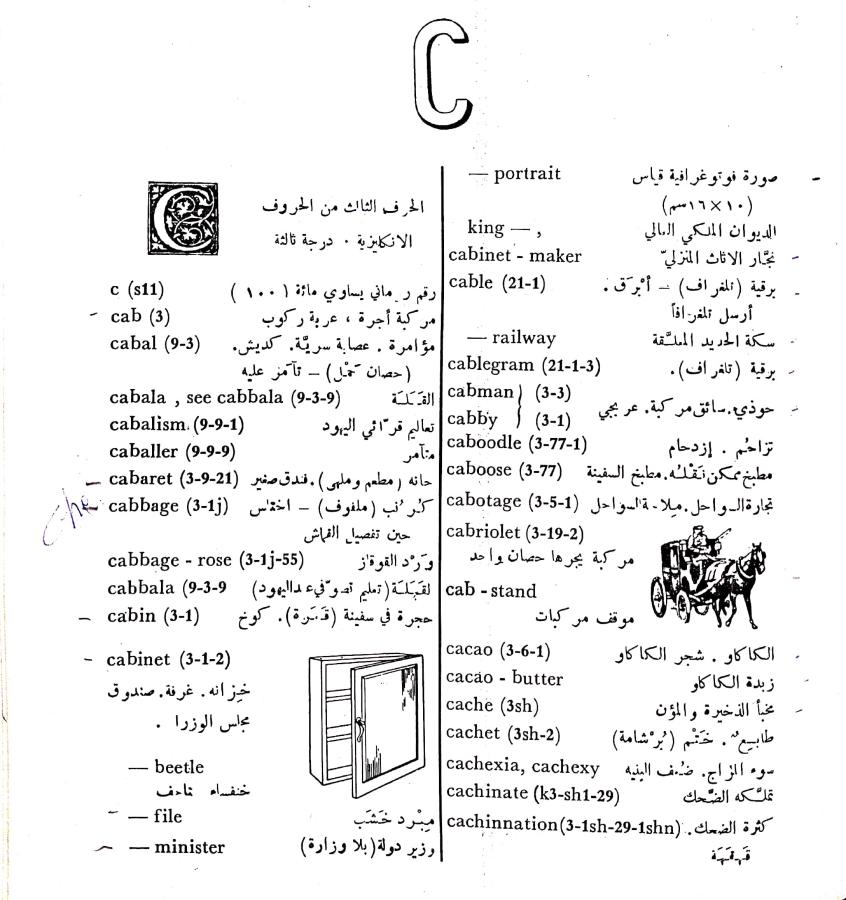 C
C
الحرف الثالث من الحروف
الانكليزية . درجة ثالثة
c (s11) رقم روماني يساوي مائة (١٠٠)
cab (3) مركبة أجرة ، عربة ركوب
cabal (9-3) مؤامرة . عصابة سريّة. كديش.
(حصان تحمْل) — تآمَر عليه
cabala , see cabbala (9-3-9) القَبَلَة
cabalism (9-9-1) تعاليم قرّائي اليهود
caballer (9-9-9) متآمر
cabaret (3-9-21) حانه (مطعم وملهى). فندق صغير
cabbage (3-1j) كرُنب (ملفوف) — اختلس
حين تفصيل القماش
cabbage - rose (3-1j-55) وَرْد القوقاز
cabbala (9-3-9 لقَبَلَة (تعليم تصوّفي عند اليهود)
cabin (3-1) حجرة في سفينة (قَمَرة). كوخ
cabinet (3-1-2)
خِزانه. غرفة. صندوق
مجلس الوزرا .
— beetle
خنفساء
— file مِبْرد خَشَب
— minister وزير دولة (بلا وزارة)
— portrait صورة فوتوغرافية قياس
(١٠×١٦سم)
king — , الديوان الملكي المالي
cabinet - maker نجّار الاثاث المنزليّ
cable (21-1) برقية (تلغراف) — أبْرَق .
أرسل تلغرافاً
— railway سكة الحديد المعلّقة
cablegram (21-1-3) برقية (تلغراف).
cabman (3-3)
حوذي. سائق مركبة. عربجي
cabby (3-1)
caboodle (3-77-1) تزاحُم . إزدحام
caboose (3-77) مطبخ يمكن نَقْلُه. مطبخ السفينة
cabotage (3-5-1) تجارة السواحل. ملاحة السواحل
cabriolet (3-19-2)
مركبة يجرها حصان واحد
cab - stand
موقف مركبات
cacao (3-6-1) الكاكاو . شجر الكاكاو
cacao - butter زبدة الكاكاو
cache (3sh) مخبأ الذخيرة والمؤن
cachet (3sh-2) طابع . خَتْم (بُرْشامة)
cachexia, cachexy سوء المزاج. ضُعف البنيه
cachinate (k3-sh1-29) تملّكه الضّحك
cachinnation(3-1sh-29-1shn) كثرة الضحك.
قَهقَهَة